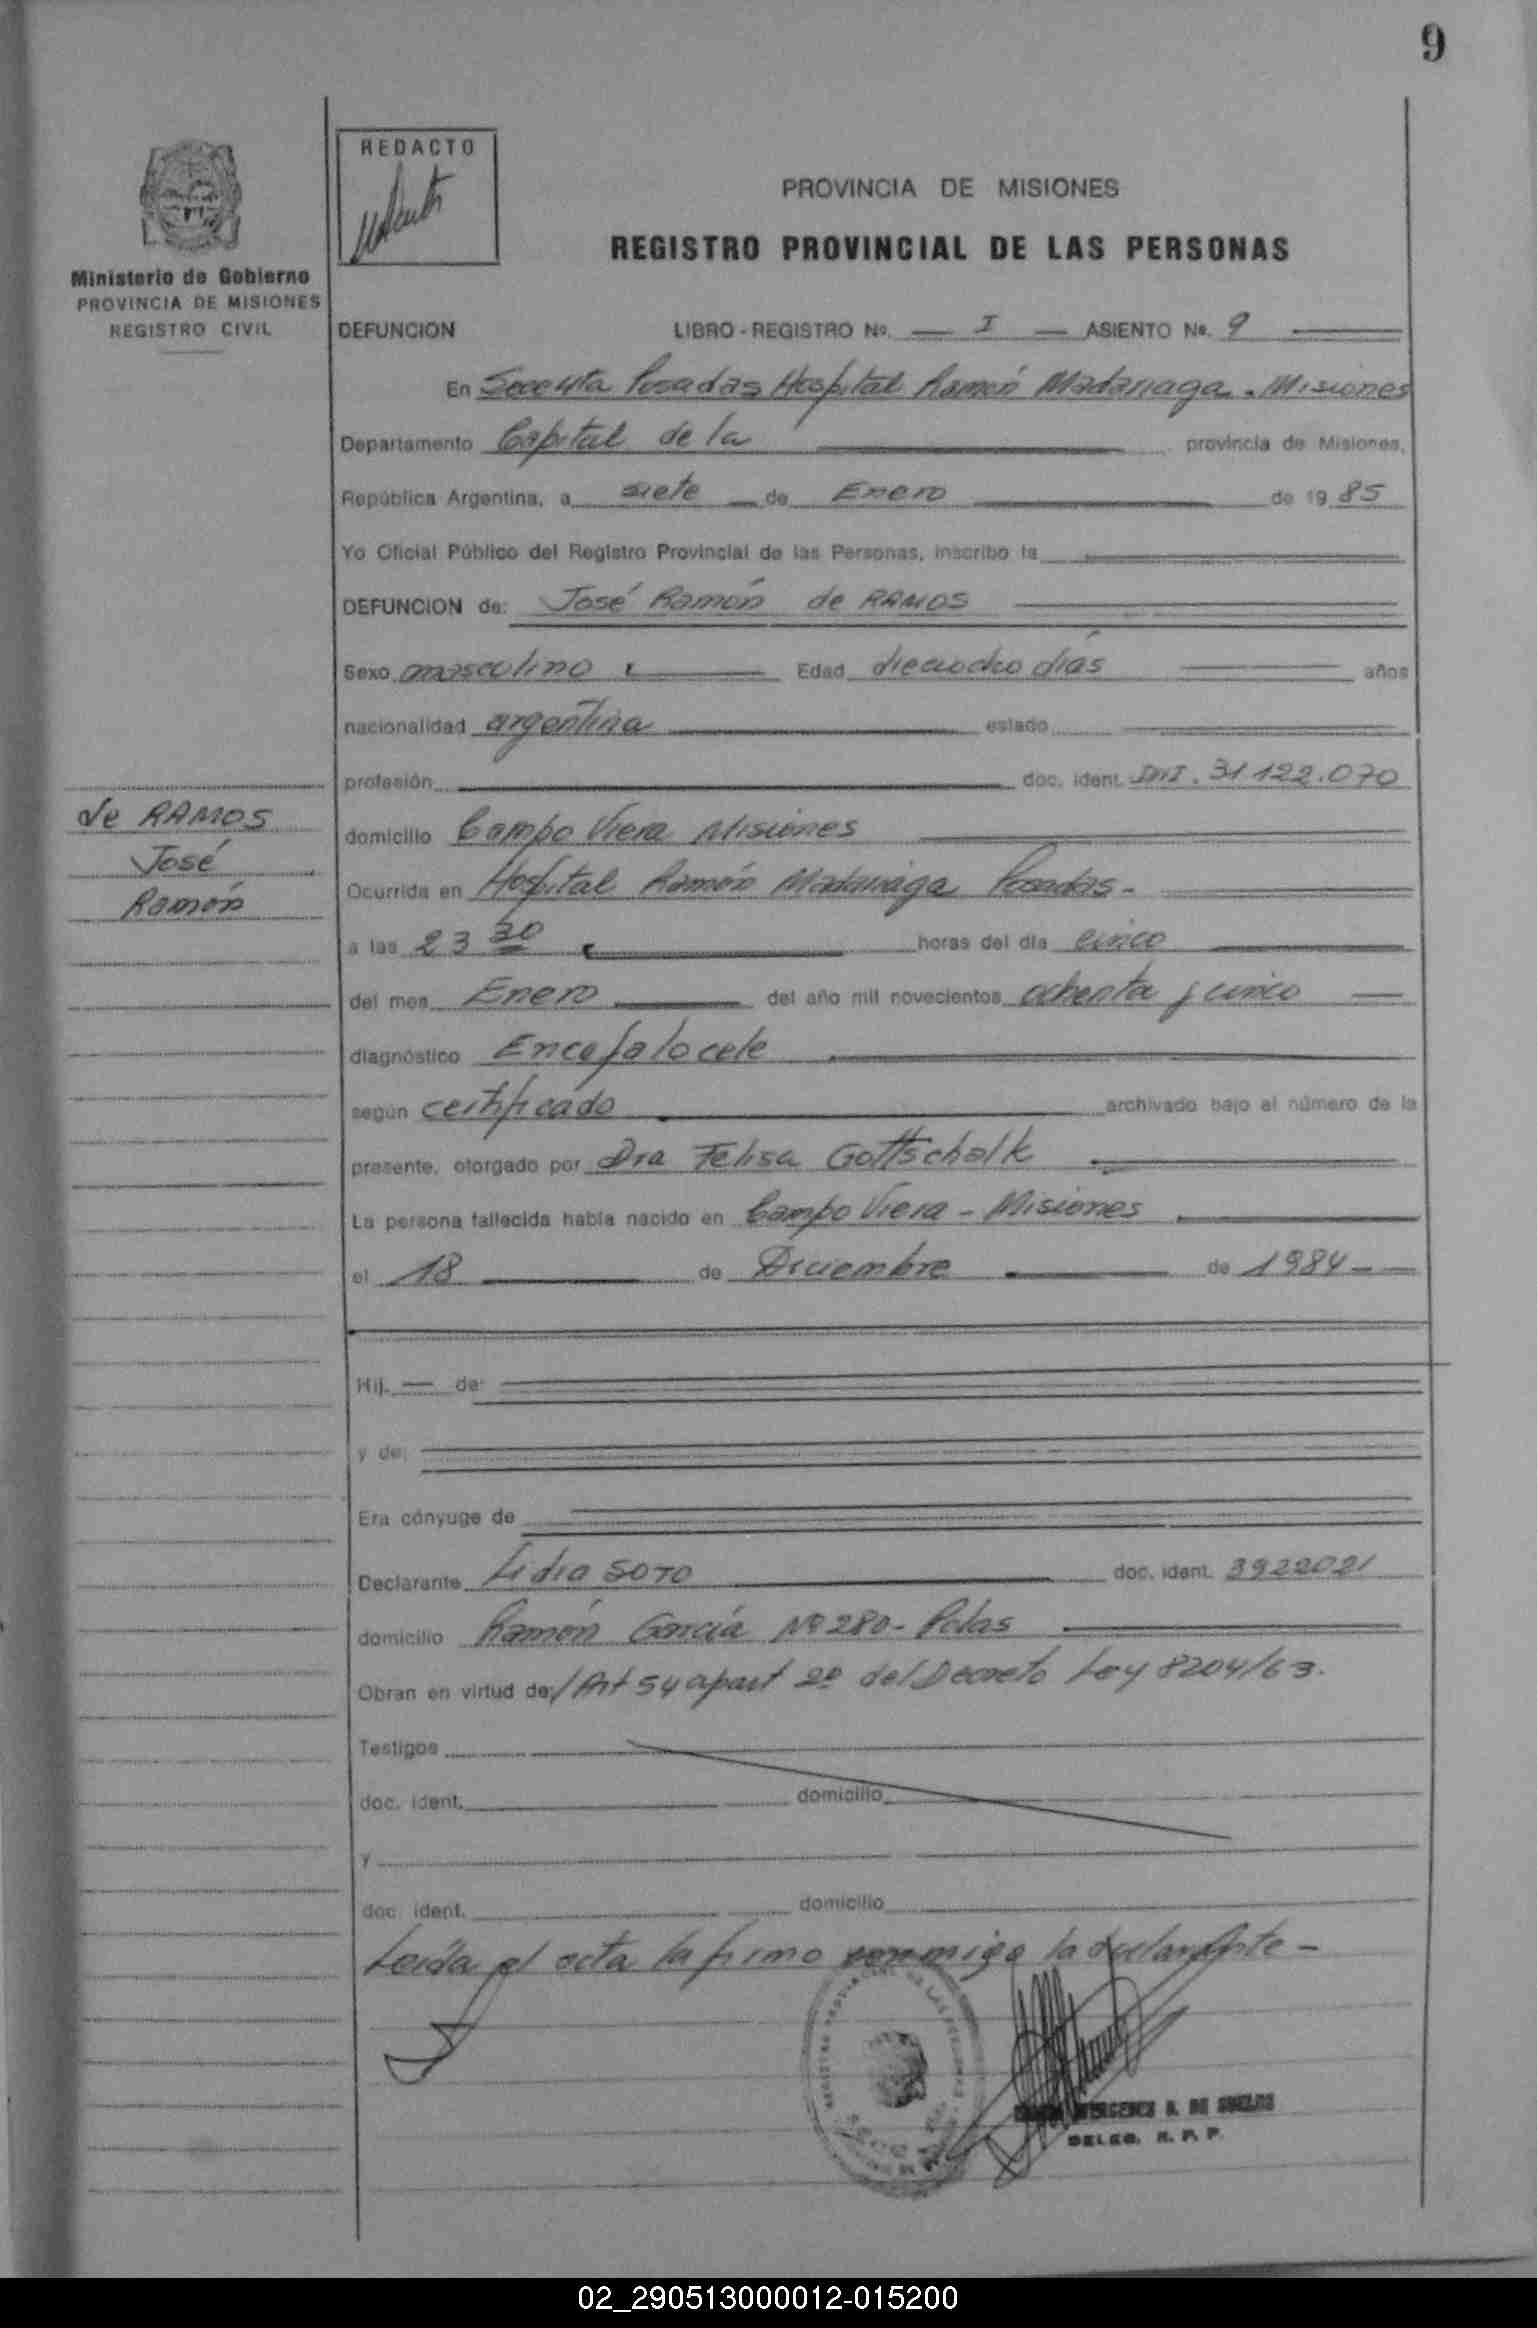 9
REDACTO
PROVINCIA DE MISIONES
REGISTRO PROVINCIAL DE LAS PERSONAS
Ministerio de Gobierno
PROVINCIA DE MISIONES
REGISTRO CIVIL
DEFUNCION LIBRO - REGISTRO No. I ASIENTO No. 9
En Posadas Hospital Ramón Madariaga - Misiones
Departamento Capital de la provincia de Misiones,
República Argentina, a siete de Enero de 19 85
Yo Oficial Público del Registro Provincial de las Personas, inscribo la
DEFUNCION de: José Ramón de RAMOS
Sexo masculino Edad dieciocho días años
nacionalidad argentina estado
profesión doc. ident. DNI. 31.122.070
de RAMOS
José
Ramón
domicilio Campo Viera Misiones
Ocurrida en Hospital Ramón Madariaga Posadas -
a las 23 30 horas del día cinco
del mes Enero del año mil novecientos ochenta y cinco
diagnóstico Encefalocele
según certificado archivado bajo el número de la
presente, otorgado por Dra Felisa Gottschalk
La persona fallecida había nacido en Campo Viera - Misiones
el 18 de Diciembre de 1984
Hij. de:
y de:
Era cónyuge de
Declarante Lidia SOTO doc. ident. 3922021
domicilio Ramón García Nº 280 - Pdas
Obran en virtud de:/ Art 54 apart 2º del Decreto Ley 8204/63.
Testigos
doc. ident. domicilio
y
doc. ident. domicilio
Leída el acta la firma conmigo la declarante -
DE SUELOS
DELEG. R. P. P.
02_290513000012-015200